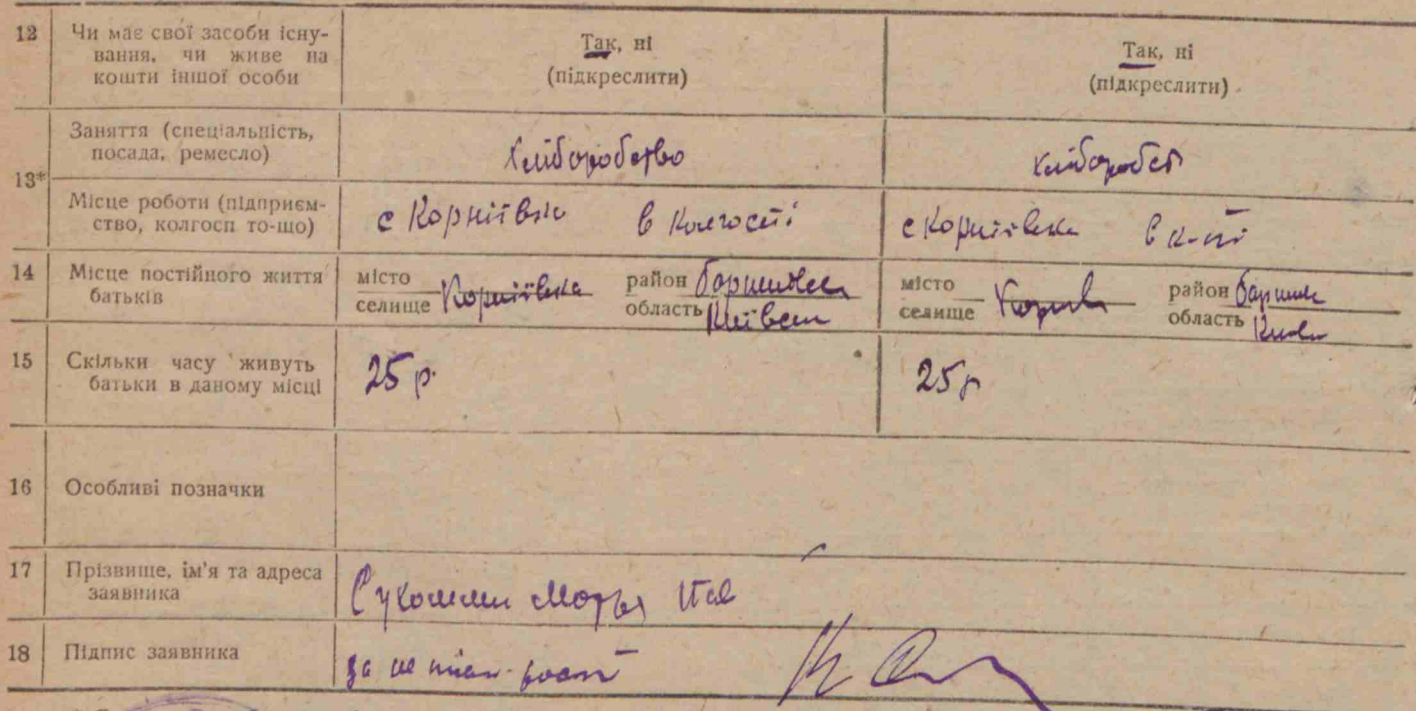 12 Чи має свої засоби існу-
вання, чи живе на
кошти іншої особи
Так, ні
(підкреслити)
Так, ні
(підкреслити)
13*
Заняття (спеціальність,
посада, ремесло)
хліборобство
хлібороб
Місце роботи (підприєм-
ство, колгосп то-що)
с Корніївки в колгоспі
с Корніївка в к-пі
14 Місце постійного життя
батьків
місто
селище Корніївка
район Баришівск
область Київськ
місто
селище Корнів
район Бариш
область Київ
15 Скільки часу живуть
батьки в даному місці
25 р.
25 р
16 Особливі позначки
17 Прізвище, ім'я та адреса
заявника
Мотря
18 Підпис заявника
за не